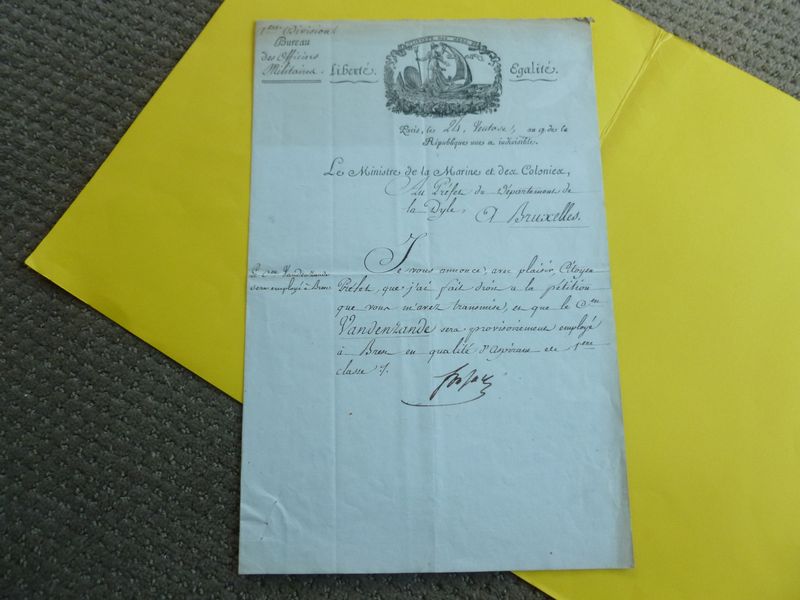 1ère Division
Bureau
des Officiers
Militaires.
Liberté.
Egalité.
Paris, le 24 Ventose, an 9 de la
République une et indivisible.
Le Ministre de la Marine et des Colonies,
Au Préfet du Département de
la Dyle, A Bruxelles.
Le Cen Vandenzande
sera employé à Brest
Je vous annonce, avec plaisir, Citoyen
Préfet, que j'ai fait droit à la pétition
que vous m'avez transmise, et que le Cen
Vandenzande sera provisoirement employé
à Brest en qualité d'Aspirant de 1ere
classe